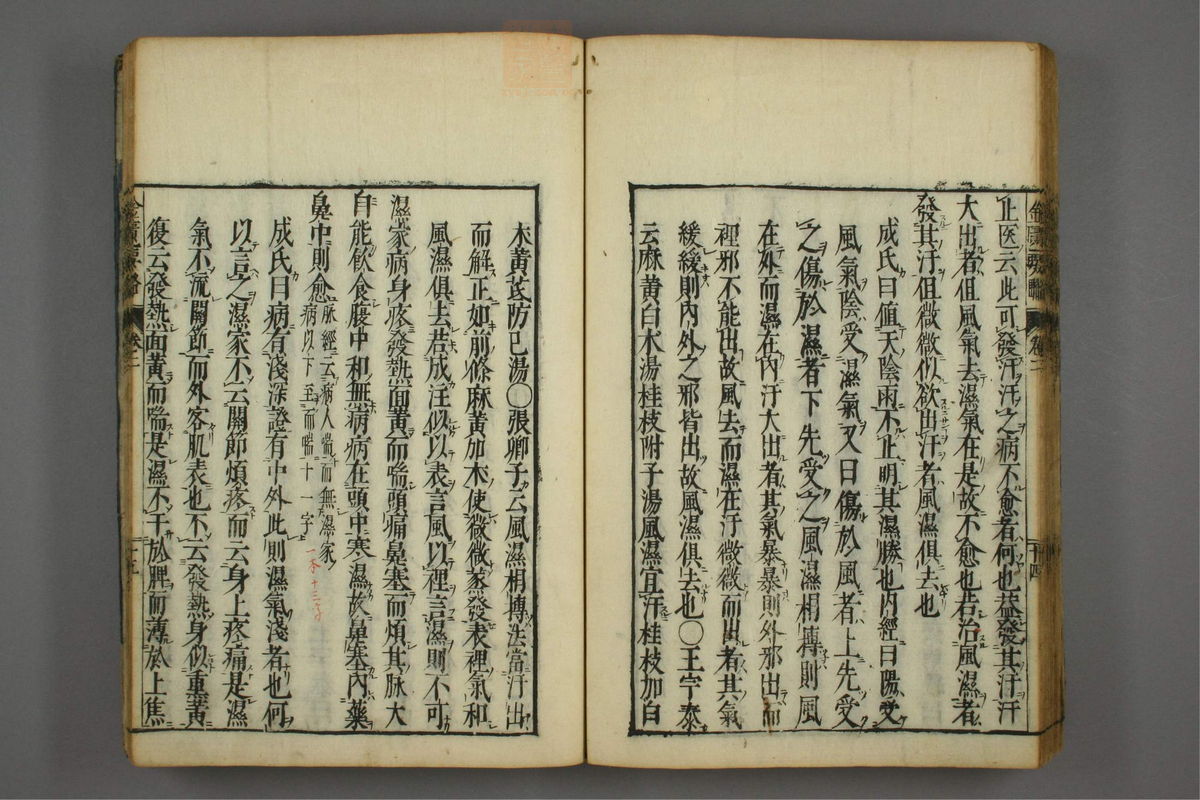 止医云此可發汗汗之病不愈者何也葢發其汗汗
大出者但風氣去濕氣在是故不愈也若治風濕者
發其汗但微微似欲出汗者風濕俱去也
成氏曰値天陰雨不止明其濕勝也内經曰陽受
風氣陰受濕氣又曰傷於風者上先受
之傷於濕者下先受之風濕相摶則風
在外而濕在内汗大出者其氣暴暴則外邪出而
裡邪不能出故風去而濕在汗微微而出者其氣
緩緩則内外之邪皆出故風濕俱去也〇王宇泰
云麻黄白术湯桂枝附子湯風濕宜汗桂枝加白
术黄芪防己湯〇張卿子云風濕相摶法當汗出
而解正如前條麻黄加术使微微蒸發表裡氣和
風濕俱去若成注似以表言風以裡言濕則不可
濕家病身疼發熱面黄而喘頭痛鼻塞而煩其脉大
自能飲食腹中和無病病在頭中寒濕故鼻塞内藥
鼻中則愈 脉經云病人喘而無濕家
病以下至而喘十一字
一本十三字
成氏曰病有淺深證有中外此則濕氣淺者也何
以言之濕家不云關節煩疼而云身上疼痛是濕
氣不流關節而外客肌表也不云發熱身似熏黄
復云發熱面黄而喘是濕不干於脾而薄於上焦
卷二
十四
卷二
十五